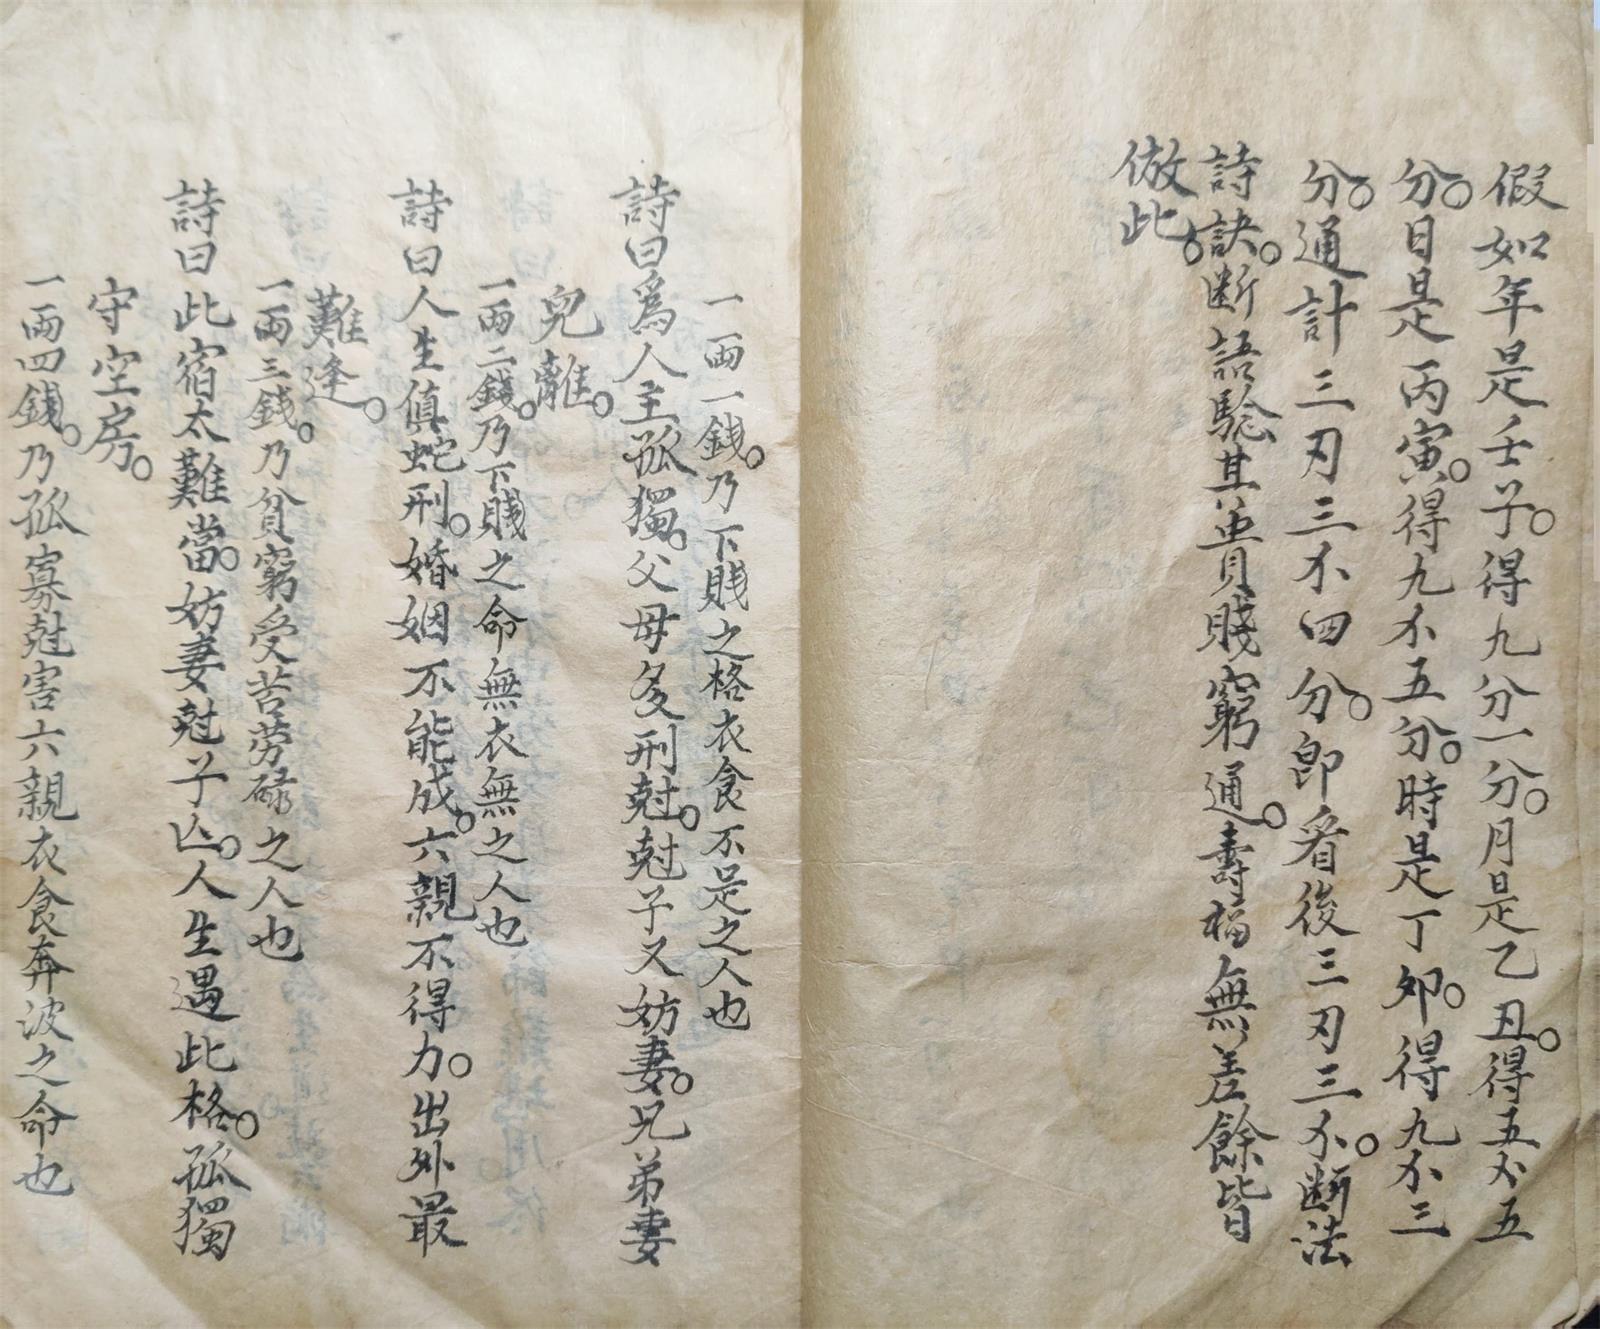 假如年是壬子。得九分一分。月是乙丑。得五分五
分。日是丙寅。得九小五分。時是丁卯。得九小三
分。通計三刃三小四分。即看後三刃三小。断法
詩訣。断語驗其貴賤窮通。壽福無差餘皆
倣此。
一兩一錢。乃下賤之格衣食不足之人也
詩曰為人主孤獨。父母多刑尅。尅子又妨妻。兄弟妻
兒離。
一兩二錢。乃下賤之命無衣無之人也
詩曰人生值蛇刑。婚姻不能成。六親不得力。出外最
難逢。
一兩三錢。乃貧窮受苦劳碌之人也
詩曰此宿太難當。妨妻尅子亡。人生遇此格。孤獨
守空房。
一兩四錢。乃孤寡尅害六親衣食奔波之命也